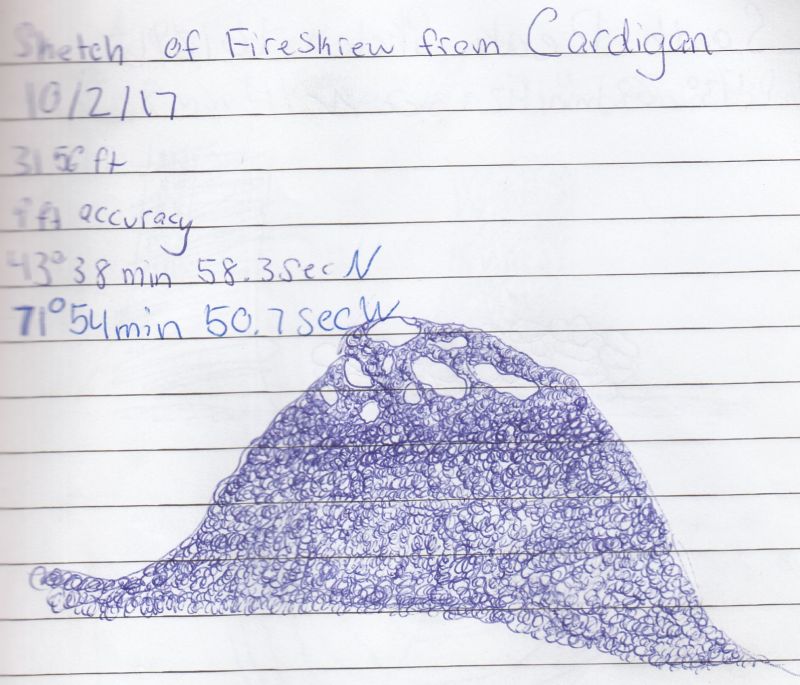 Sketch of Fireskrew from Cardigan
10/2/17
3156 ft
9 ft accuracy
43° 38 min 58.3 sec N
71° 54 min 50.7 sec W